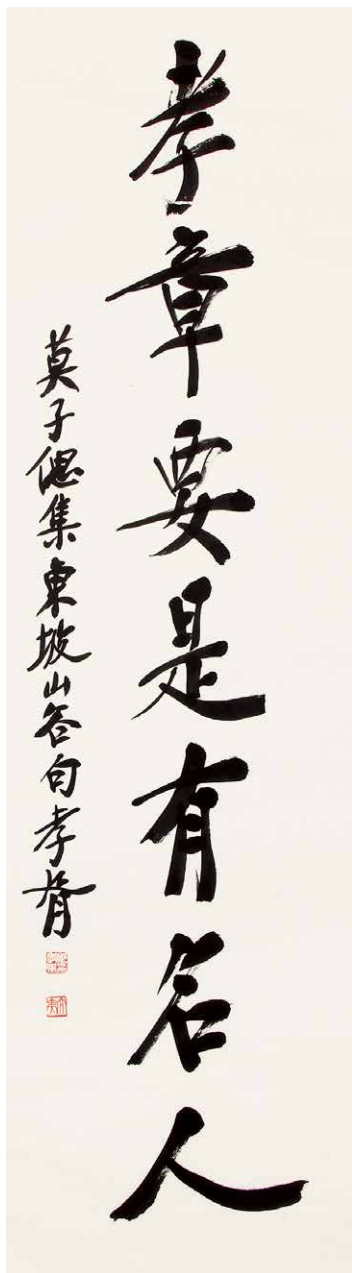 孝章要是有名人
莫子偲集東坡山谷句孝胥